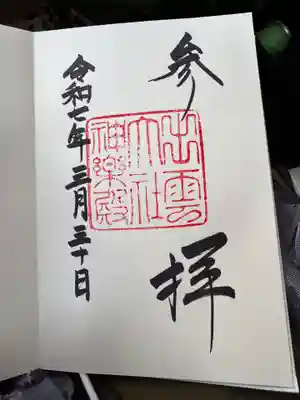 参拝
出雲
大社
神樂殿
令和七年三月三十日